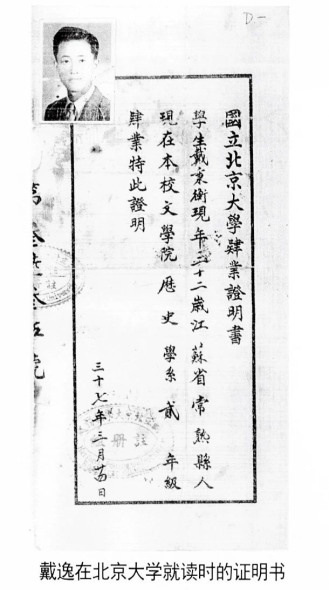 D-
國立北京大學肄業證明書
學生戴秉衡現年二十二歲江蘇省常熟縣人
現在本校文學院歷史學系貳年級
肄業特此證明
三十七年三月 日
註冊
戴逸在北京大学就读时的证明书